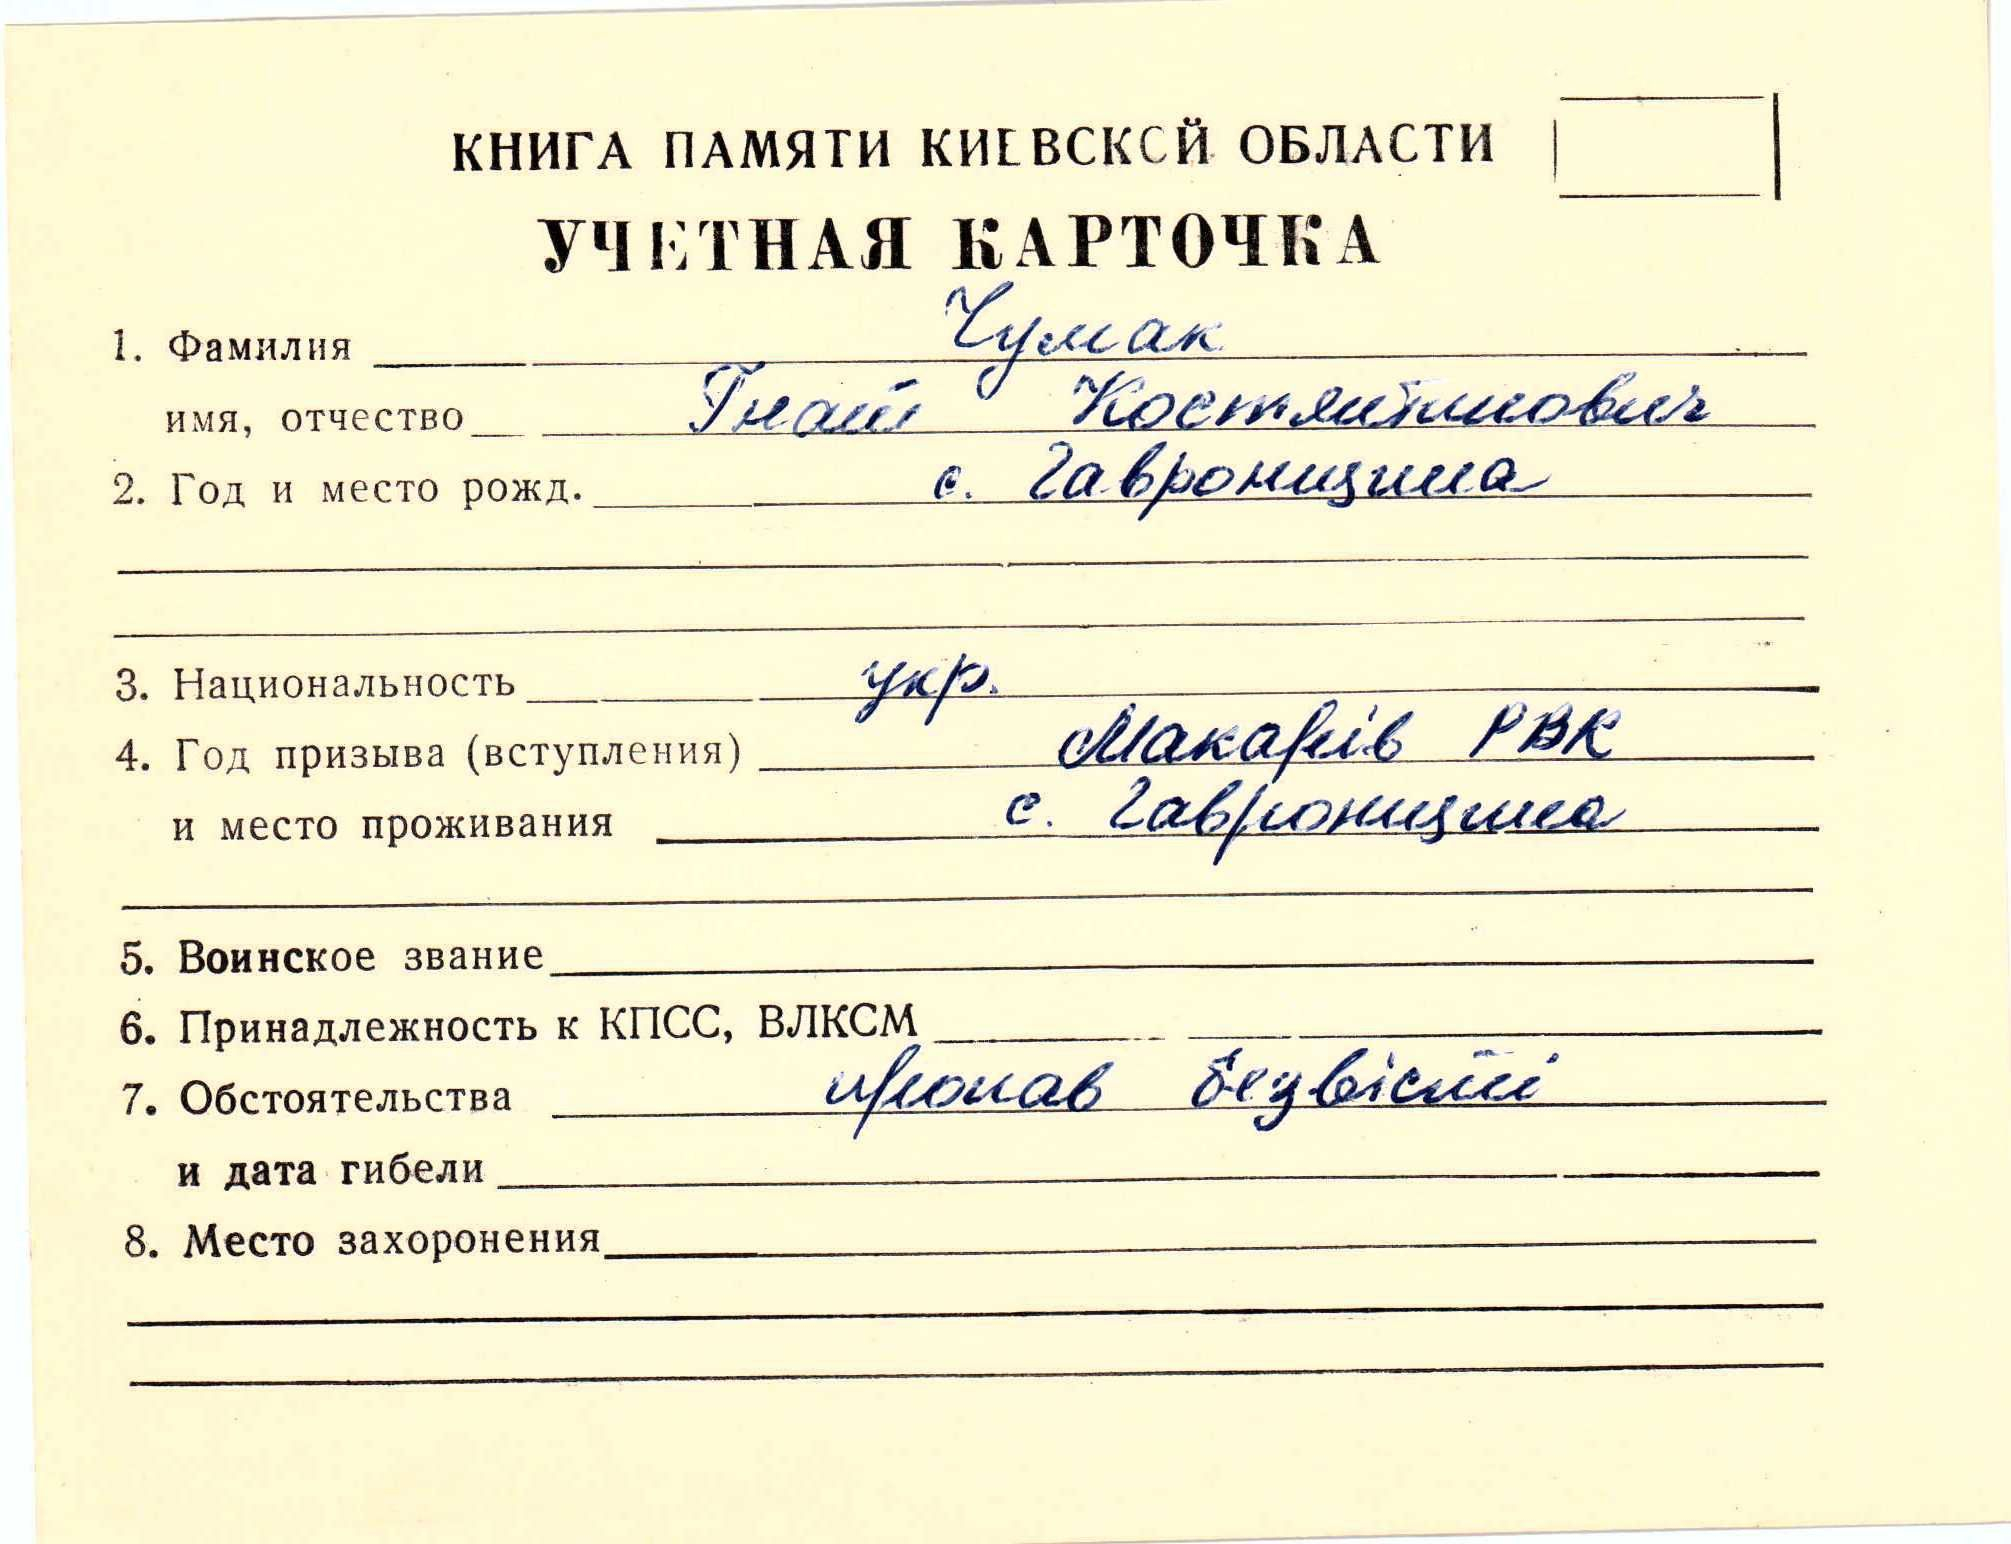 КНИГА ПАМЯТИ КИЕВСКОЙ ОБЛАСТИ
УЧЕТНАЯ КАРТОЧКА
1. Фамилия Чумак
имя, отчество Гнат Костянтинович
2. Год и место рожд. с. Гавронщина
3. Национальность укр.
4. Год призыва (вступления) Макарів РВК
и место проживания с. Гавронщина
5. Воинское звание
6. Принадлежность к КПСС, ВЛКСМ
7. Обстоятельства пропав безвісті
и дата гибели
8. Место захоронения